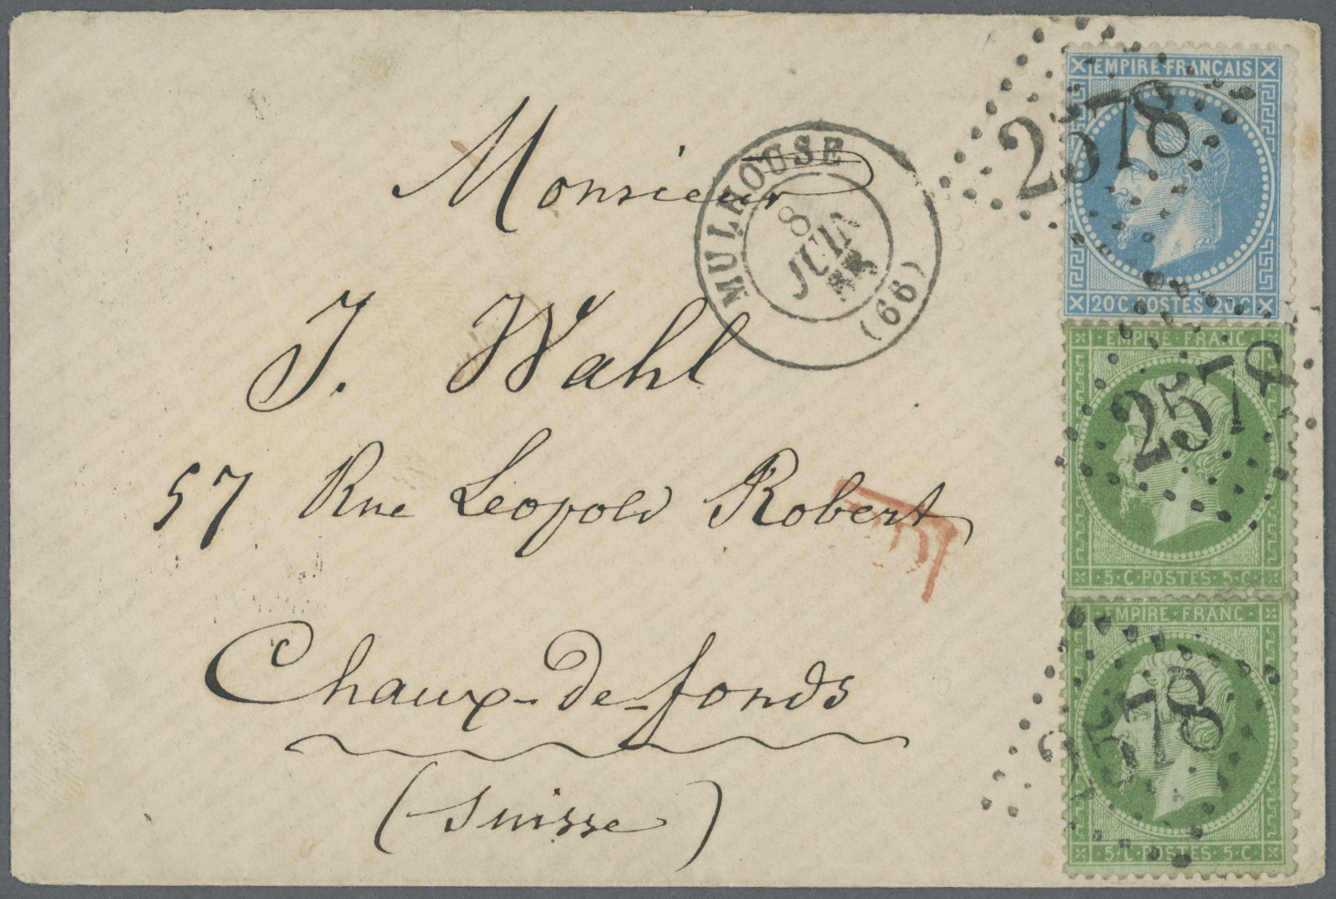 Monsieur
J. Wahl
57 Rue Léopold Robert
Chaux-de-fonds
(Suisse)
MULHOUSE
8
JUIN
(66)
EMPIRE FRANÇAIS
2578
20 C POSTES 20 C
EMPIRE FRANC
2578
5 C POSTES 5 C
EMPIRE FRANC
2578
5 C POSTES 5 C